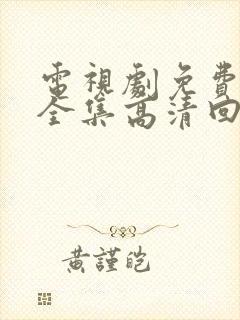 電視劇免費
全集高清回
黃謹皑